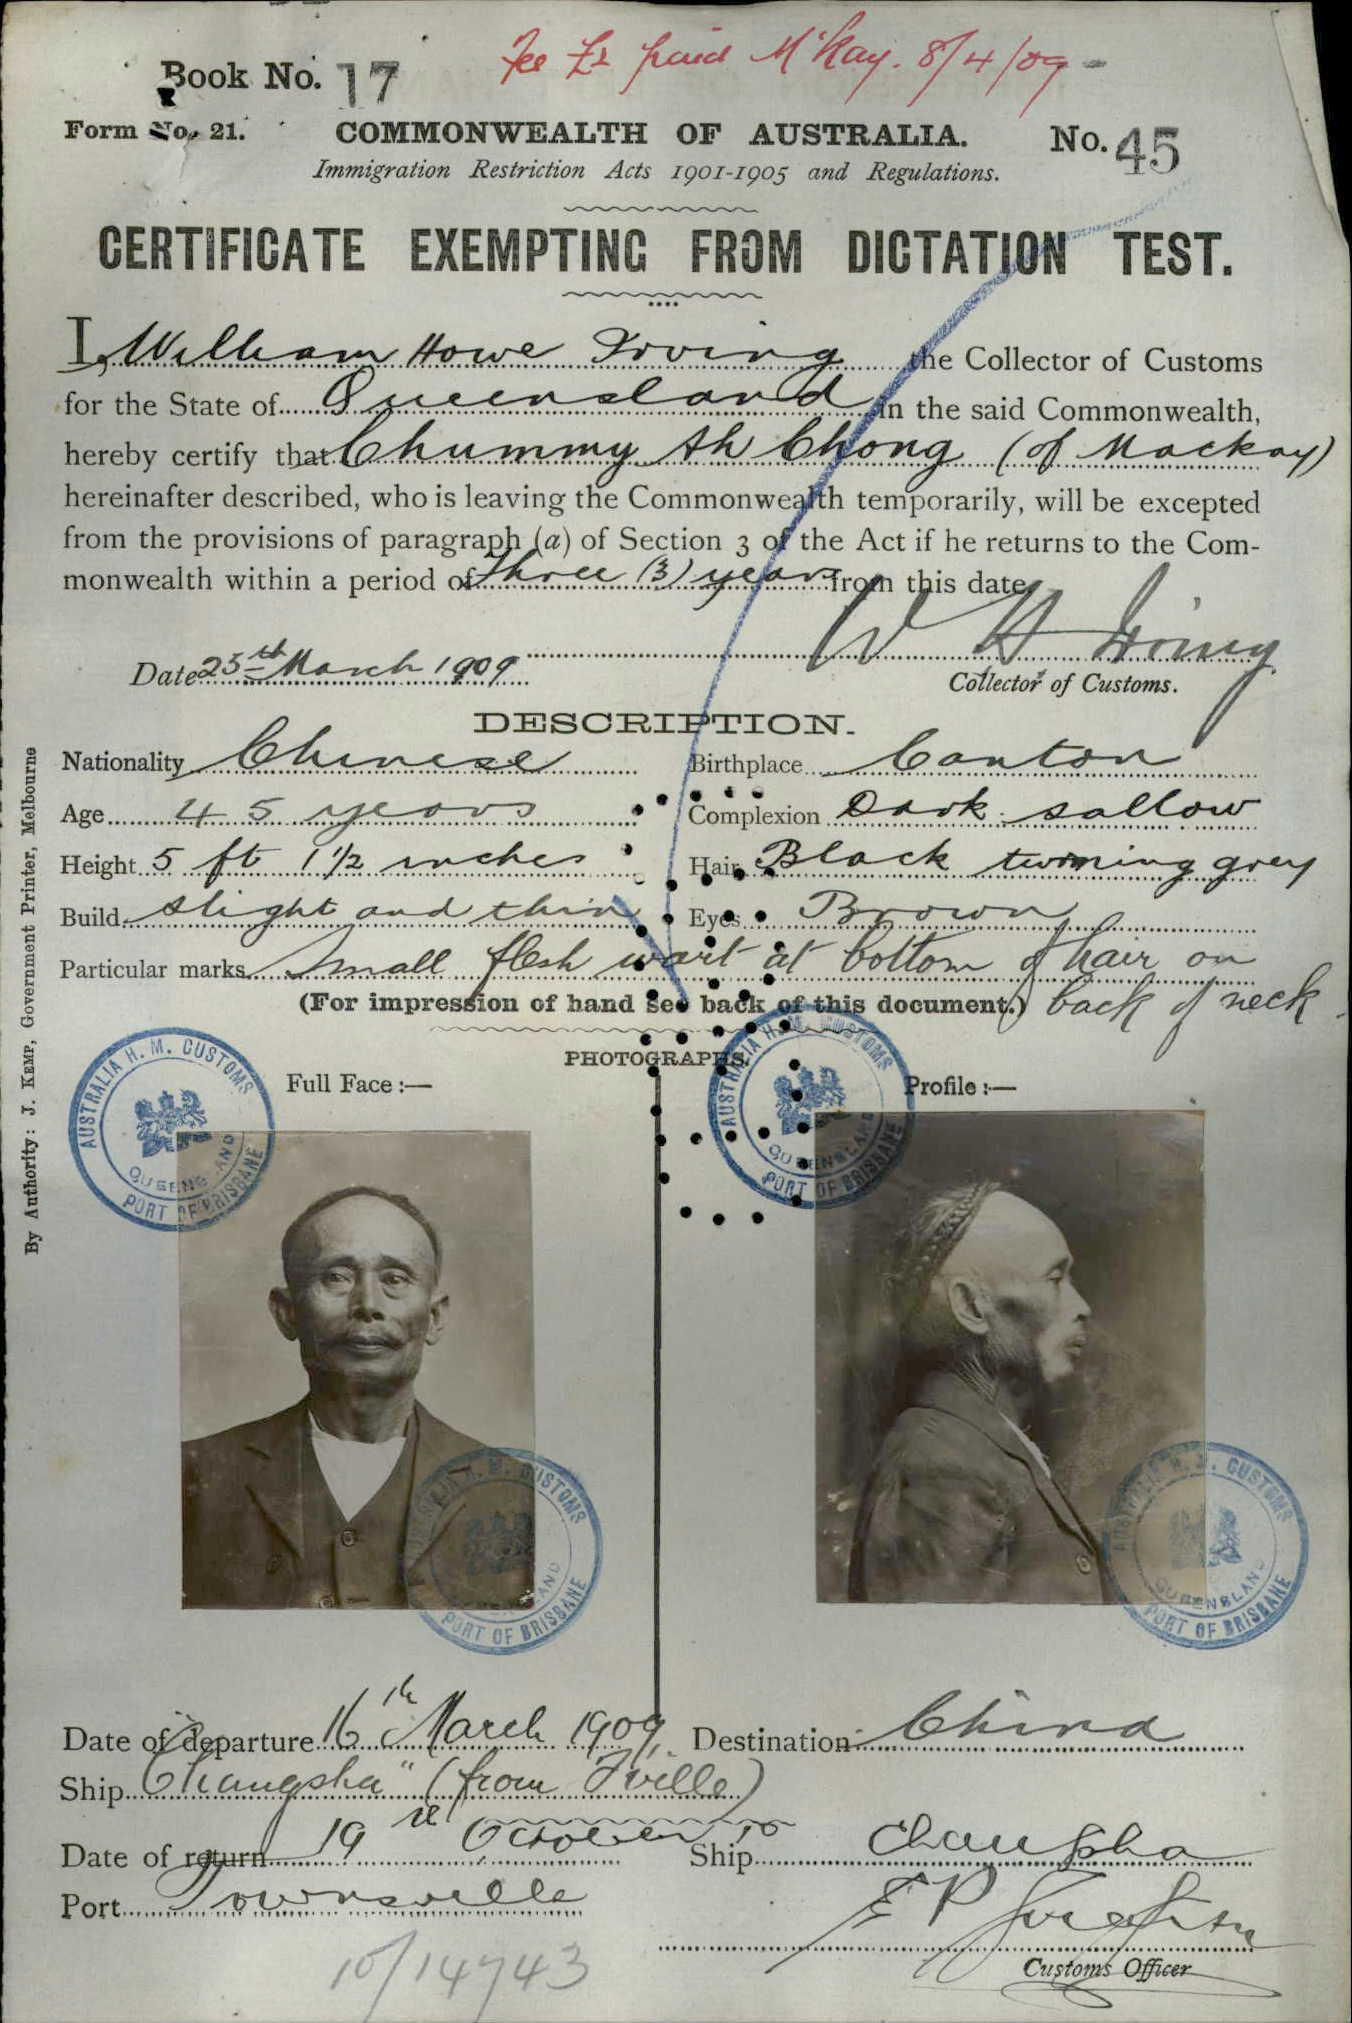 Fee £1 paid M'Kay. 8/4/09
Book No. 17
Form No. 21.
COMMONWEALTH OF AUSTRALIA.
No. 45
Immigration Restriction Acts 1901-1905 and Regulations.
CERTIFICATE EXEMPTING FROM DICTATION TEST.
I, William Howe Irving the Collector of Customs
for the State of Queensland in the said Commonwealth,
hereby certify that Chummy Ah Chong (of Mackay)
hereinafter described, who is leaving the Commonwealth temporarily, will be excepted
from the provisions of paragraph (a) of Section 3 of the Act if he returns to the Com-
monwealth within a period of Three (3) years from this date
W H Irving
Date 25th March 1909
Collector of Customs.
DESCRIPTION.
Nationality Chinese Birthplace Canton
Age 45 years Complexion Dark sallow
Height 5 ft 1 1/2 inches Hair Black turning grey
Build slight and thin Eyes Brown
Particular marks Small flesh wart at bottom of hair on
(For impression of hand see back of this document.) back of neck
PHOTOGRAPHS.
Full Face :—
Profile :—
AUSTRALIA H. M. CUSTOMS
QUEENSLAND
PORT OF BRISBANE
AUSTRALIA H. M. CUSTOMS
QUEENSLAND
PORT OF BRISBANE
AUSTRALIA H. M. CUSTOMS
QUEENSLAND
PORT OF BRISBANE
AUSTRALIA H. M. CUSTOMS
QUEENSLAND
PORT OF BRISBANE
Date of departure 16th March 1909. Destination China
Ship "Changsha" (from T'ville)
Date of return 19th October 10 Ship Changsha
Port Townsville
Customs Officer
10/14743
By Authority: J. KEMP, Government Printer, Melbourne